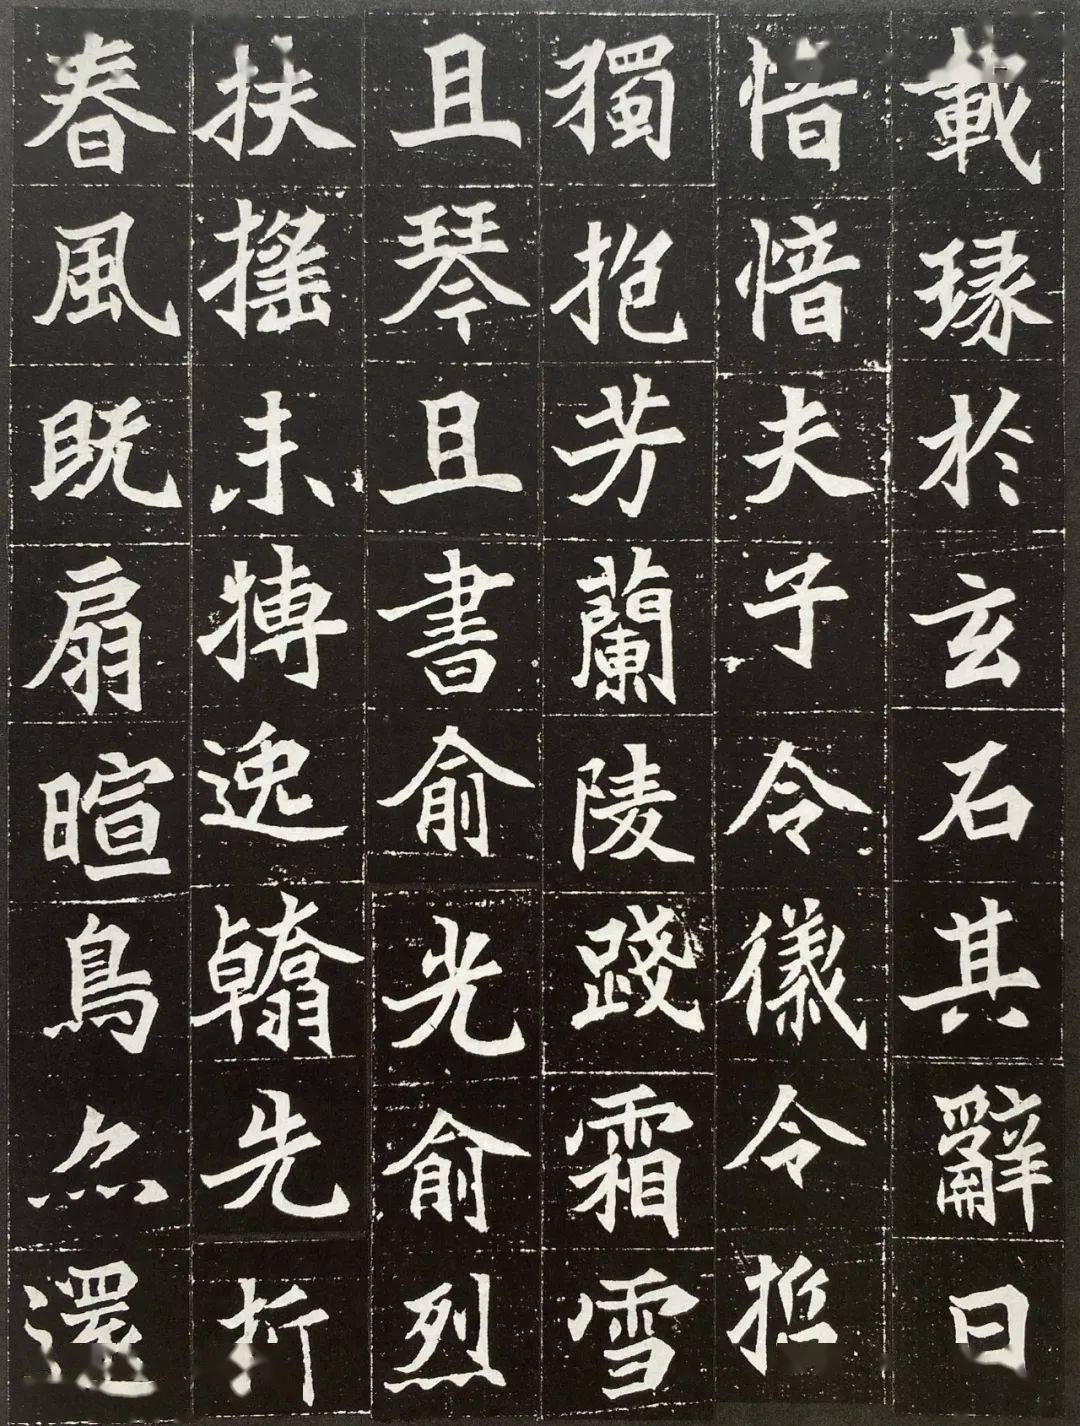 載瑑於玄石其辭曰
愔愔夫子令儀令哲
獨抱芳蘭陵踐霜雪
且琴且書俞光俞烈
扶搖未摶逸翰先折
春風既扇暄鳥亦還